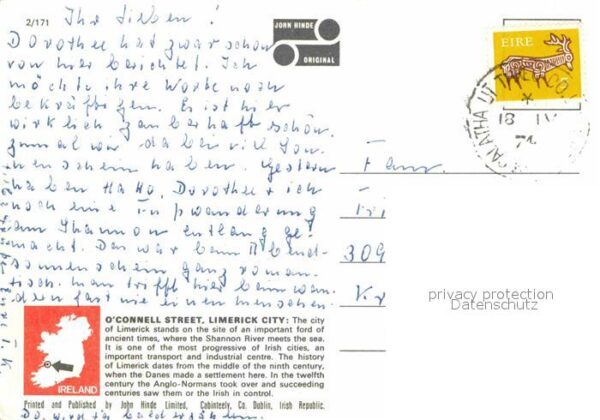 2/171
Ihr Lieben!
JOHN HINDE
ORIGINAL
EIRE
18 IV
Dorothee hat zwar schon
von hier berichtet. Ich
möchte ihre Worte noch
bekräftigen. Es ist hier
wirklich zauberhaft schön,
zumal wir dabei viel Son-
nenschein haben. Gestern
haben Dorothee + ich
noch eine Fußwanderung
am Shannon entlang ge-
macht. Das war beim Abend-
sonnenschein ganz roman-
tisch. Man trifft hier beim wan-
dern fast nie einen Menschen.
Fam.
309
Kr
privacy protection
Datenschutz
IRELAND
O'CONNELL STREET, LIMERICK CITY: The city
of Limerick stands on the site of an important ford of
ancient times, where the Shannon River meets the sea.
It is one of the most progressive of Irish cities, an
important transport and industrial centre. The history
of Limerick dates from the middle of the ninth century,
when the Danes made a settlement here. In the twelfth
century the Anglo-Normans took over and succeeding
centuries saw them or the Irish in control.
Printed and Published by John Hinde Limited, Cabinteely, Co. Dublin, Irish Republic.